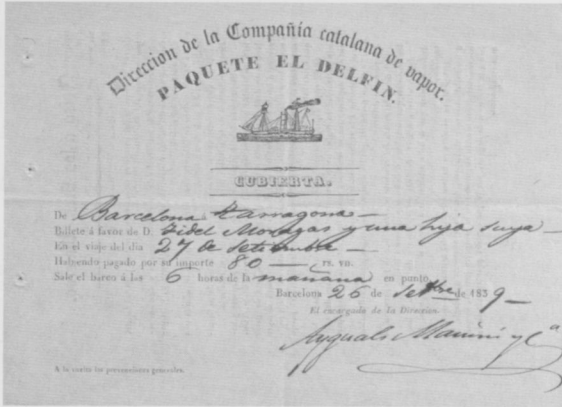 Direccion de la Compañia catalana de vapor.
PAQUETE EL DELFIN.
CUBIERTA.
De Barcelona Tarragona
Billete á favor de D. Fidel Moragas y una hija suya
En el viaje del dia 27 de Setiembre
Habiendo pagado por su importe 80 rs. vn.
Sale el barco á las 6 horas de la mañana en punto
Barcelona 26 de Setbre de 1839
El encargado de la Direccion.
Ayguals Manini y Cª
A la vuelta las prevenciones generales.